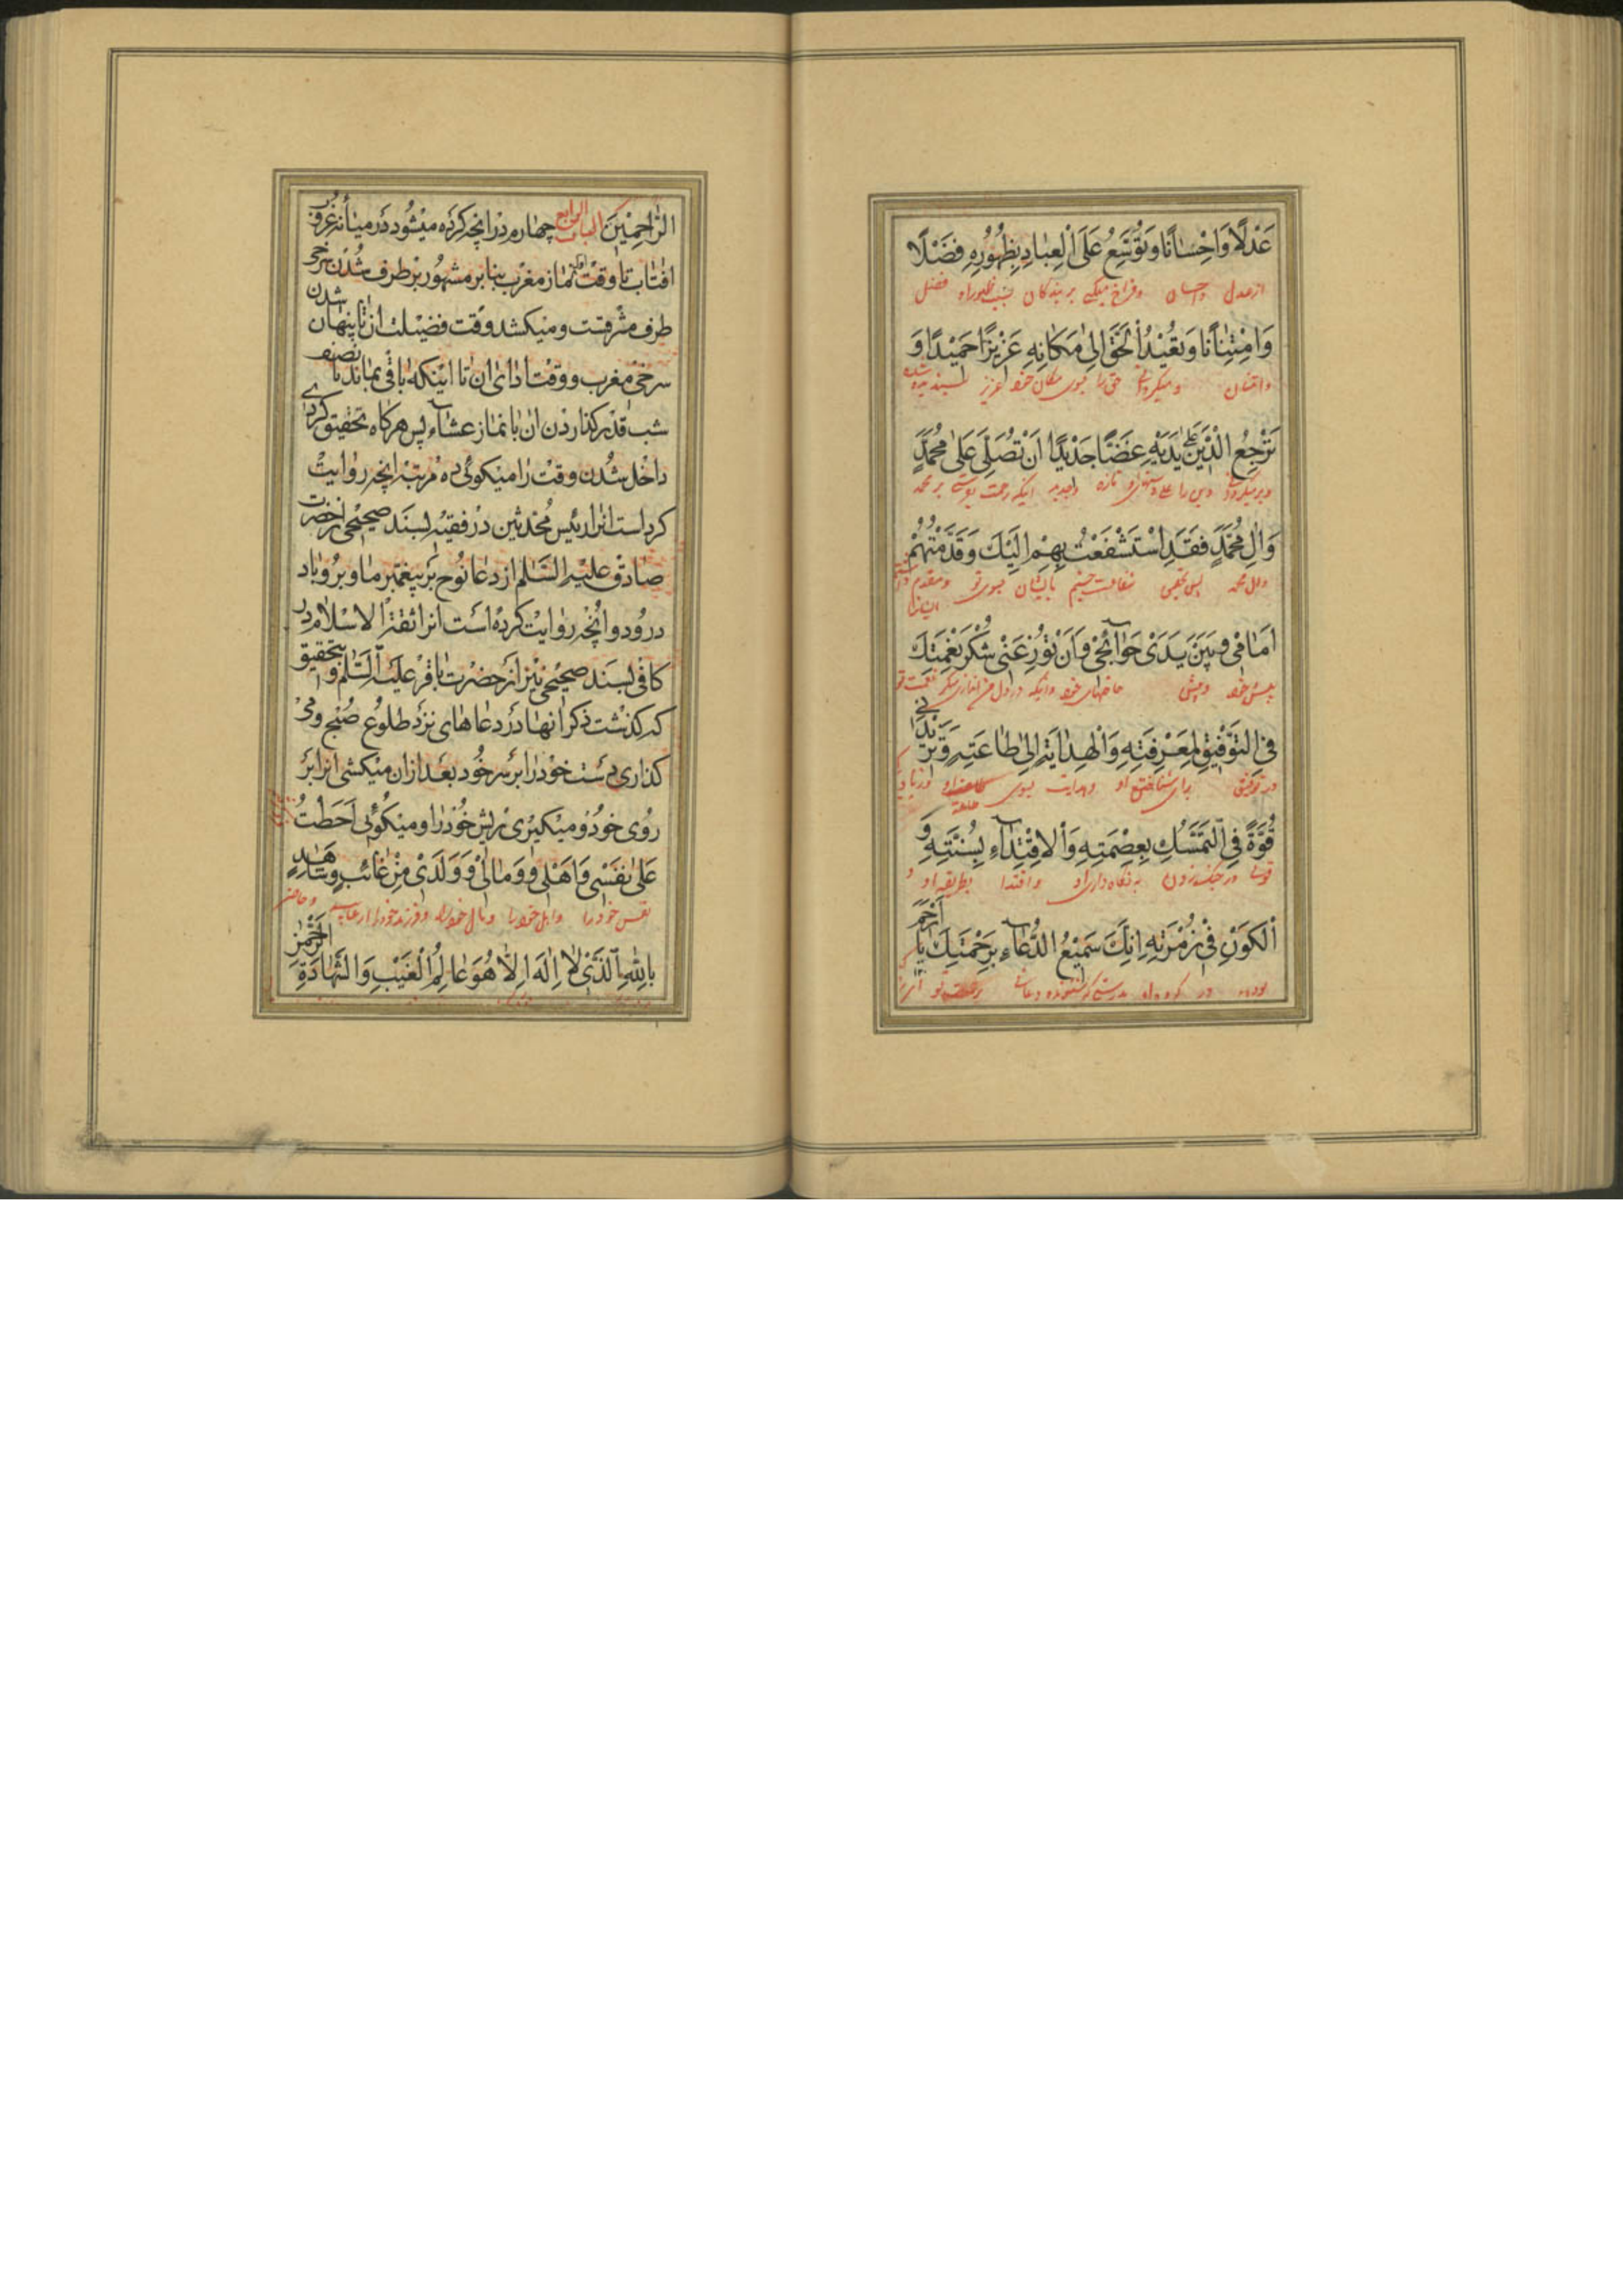 عَدْلًا وَاِحْسَانًا وَتُوَسِّعُ عَلَى الْعِبَادِ بِظُهُورِهِ فَضْلًا
از عدل و احسان و فراخ میکنی بر بندگان بسبب ظهور او فضل
وَامْتِنَانًا وَتُعِيْدُ الْحَقَّ اِلىٰ مَكَانِهِ عَزِيْزًا حَمِيْدًا وَ
و امتنان و میگردانی حق را بسوی مکان خود عزیز پسندیده شده
تَرْجِعُ الْدِّيْنَ عَلىٰ يَدَيْهِ غَضًّا جَدْيدًا اَنْ تُصَلِّىَ عَلىٰ مُحَمَّدٍ
و برمیگردد دین را و تازه اینکه رحمت بر محمد
وَاٰلِ مُحَمَّدٍ فَقَدِ اسْتَشْفَعْتُ بِهِمْ اِلَيْكَ وَقَدَّمْتُهُمْ
و ال محمد پس بتحقیق شفاعت بایشان بسوی تو و مقدم داشتم ایشانرا
اَمَامىْ وَبَيْنَ يَدَىْ حَوٰائِجىْ وَاَنْ تُوْزِعَنىْ شُكْرَ نِعْمَتِكَ
پیش خود و پیش حاجتهای خود و اینکه در دل من شکر نعمت تو
فىِ التَّوْفِيْقِ لِمَعْرِفَتِهِ وَالْهِدٰايَةِ اِلىٰ طٰاعَتِهِ وَتَزِيْدَنىْ
در توفیق برای شناختن او و هدایت بسوی طاعة او و زیاد
قُوَّةً فِى التَّمَسُّكِ بِعِصْمَتِهِ وَالْاِقْتِدٰاءِ بِسُنَّتِهِ وَ
قوت در چنگ زدن به نگاه داری او و اقتدا بطریقه او و
الْكَوْنِ فىْ زُمْرَتِهِ اِنَّكَ سَمِيْعُ الدُّعٰاءِ بِرَحْمَتِكَ يٰا اَرْحَمَ
بودن در گروه او بدرستی که شنونده دعائی برحمت تو
الرّٰاحِمِيْنَ الباب الرابع چهارم در انچه کرده میشود در میانه غروب
افتاب تا وقت نماز مغرب بنابر مشهور بر طرف شدن سرخی
طرف مشرقست و میکشد وقت فضیلت ان تا پنهان شدن
سرخی مغرب و وقت ادای ان تا اینکه باقی بماند تا نصف
شب قدر گذاردن ان با نماز عشاء پس هرگاه تحقیق کردی
داخل شدن وقت را میگوئی ده مرتبه انچه روایت
کرد است انرا رئیس محدثین در فقیه بسند صحیحی از حضرت
صادق علیه السّلام از دعا نوح که بر پیغمبر ما و بر او باد
درود و انچه روایت کرده است انرا ثقة الاسلام در
کافی بسند صحیحی نیز از حضرت باقر علیه السّلام و بتحقیق
که گذشت ذکر انها در دعاهای نزد طلوع صبح و می
گذاری دست خود را بر سر خود بعد ازان میکشی انرا بر
روی خود و میگیری بریش خود را و میگوئی اَحَطْتُ
عَلىٰ نَفْسىْ وَاَهْلىْ وَمٰالىْ وَوَلَدىْ مِنْ غٰائِبٍ وَشٰاهِدٍ
نفس خود را و اهل خود را و مال خود را و فرزند خود را از غایب و حاضر
بِاللّٰهِ الَّذىْ لٰا اِلٰهَ اِلّٰا هُوَ عٰالِمُ الْغَيْبِ وَالشَّهٰادَةِ الرَّحْمٰنِ